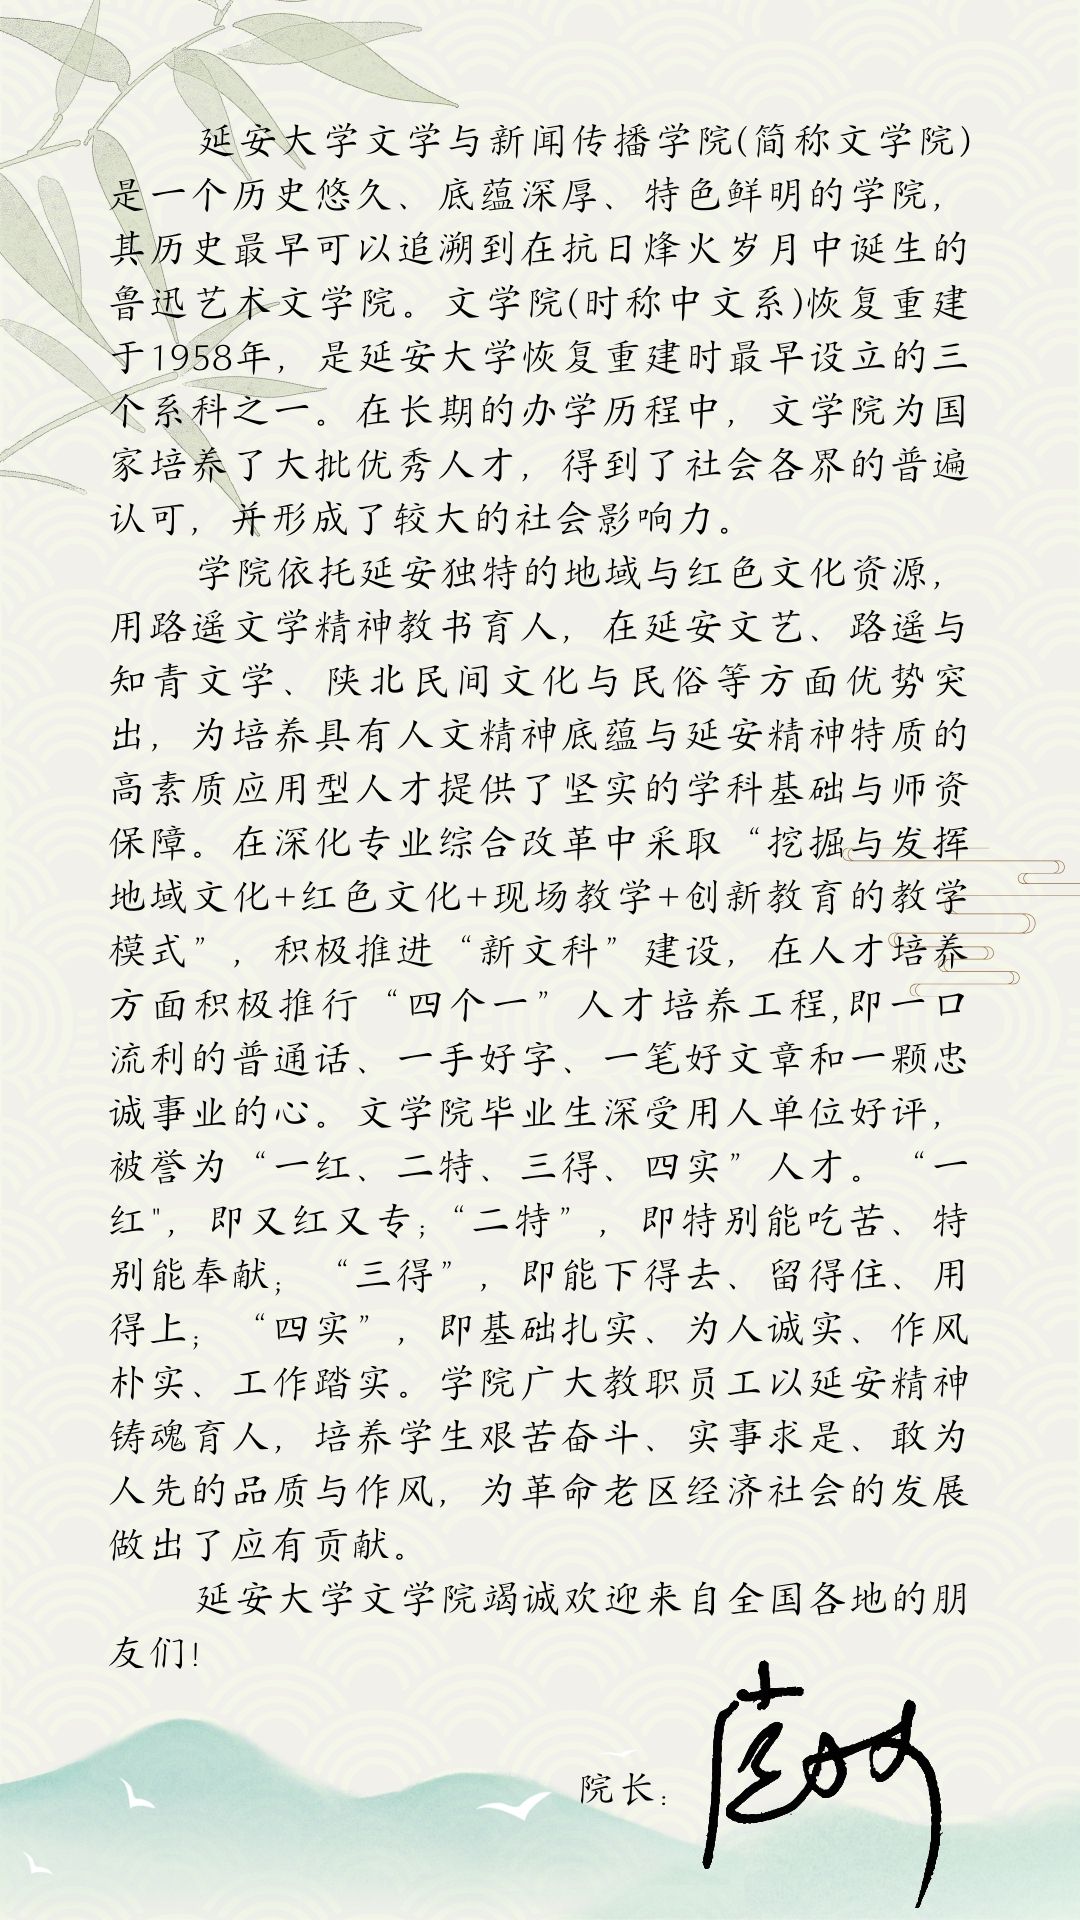 延安大学文学与新闻传播学院(简称文学院)
是一个历史悠久、底蕴深厚、特色鲜明的学院，
其历史最早可以追溯到在抗日烽火岁月中诞生的
鲁迅艺术文学院。文学院(时称中文系)恢复重建
于1958年，是延安大学恢复重建时最早设立的三
个系科之一。在长期的办学历程中，文学院为国
家培养了大批优秀人才，得到了社会各界的普遍
认可，并形成了较大的社会影响力。
学院依托延安独特的地域与红色文化资源，
用路遥文学精神教书育人，在延安文艺、路遥与
知青文学、陕北民间文化与民俗等方面优势突
出，为培养具有人文精神底蕴与延安精神特质的
高素质应用型人才提供了坚实的学科基础与师资
保障。在深化专业综合改革中采取“挖掘与发挥
地域文化+红色文化+现场教学+创新教育的教学
模式”，积极推进“新文科”建设，在人才培养
方面积极推行“四个一”人才培养工程,即一口
流利的普通话、一手好字、一笔好文章和一颗忠
诚事业的心。文学院毕业生深受用人单位好评，
被誉为“一红、二特、三得、四实”人才。“一
红"，即又红又专；“二特”，即特别能吃苦、特
别能奉献；“三得”，即能下得去、留得住、用
得上；“四实”，即基础扎实、为人诚实、作风
朴实、工作踏实。学院广大教职员工以延安精神
铸魂育人，培养学生艰苦奋斗、实事求是、敢为
人先的品质与作风，为革命老区经济社会的发展
做出了应有贡献。
延安大学文学院竭诚欢迎来自全国各地的朋
友们！
院长：